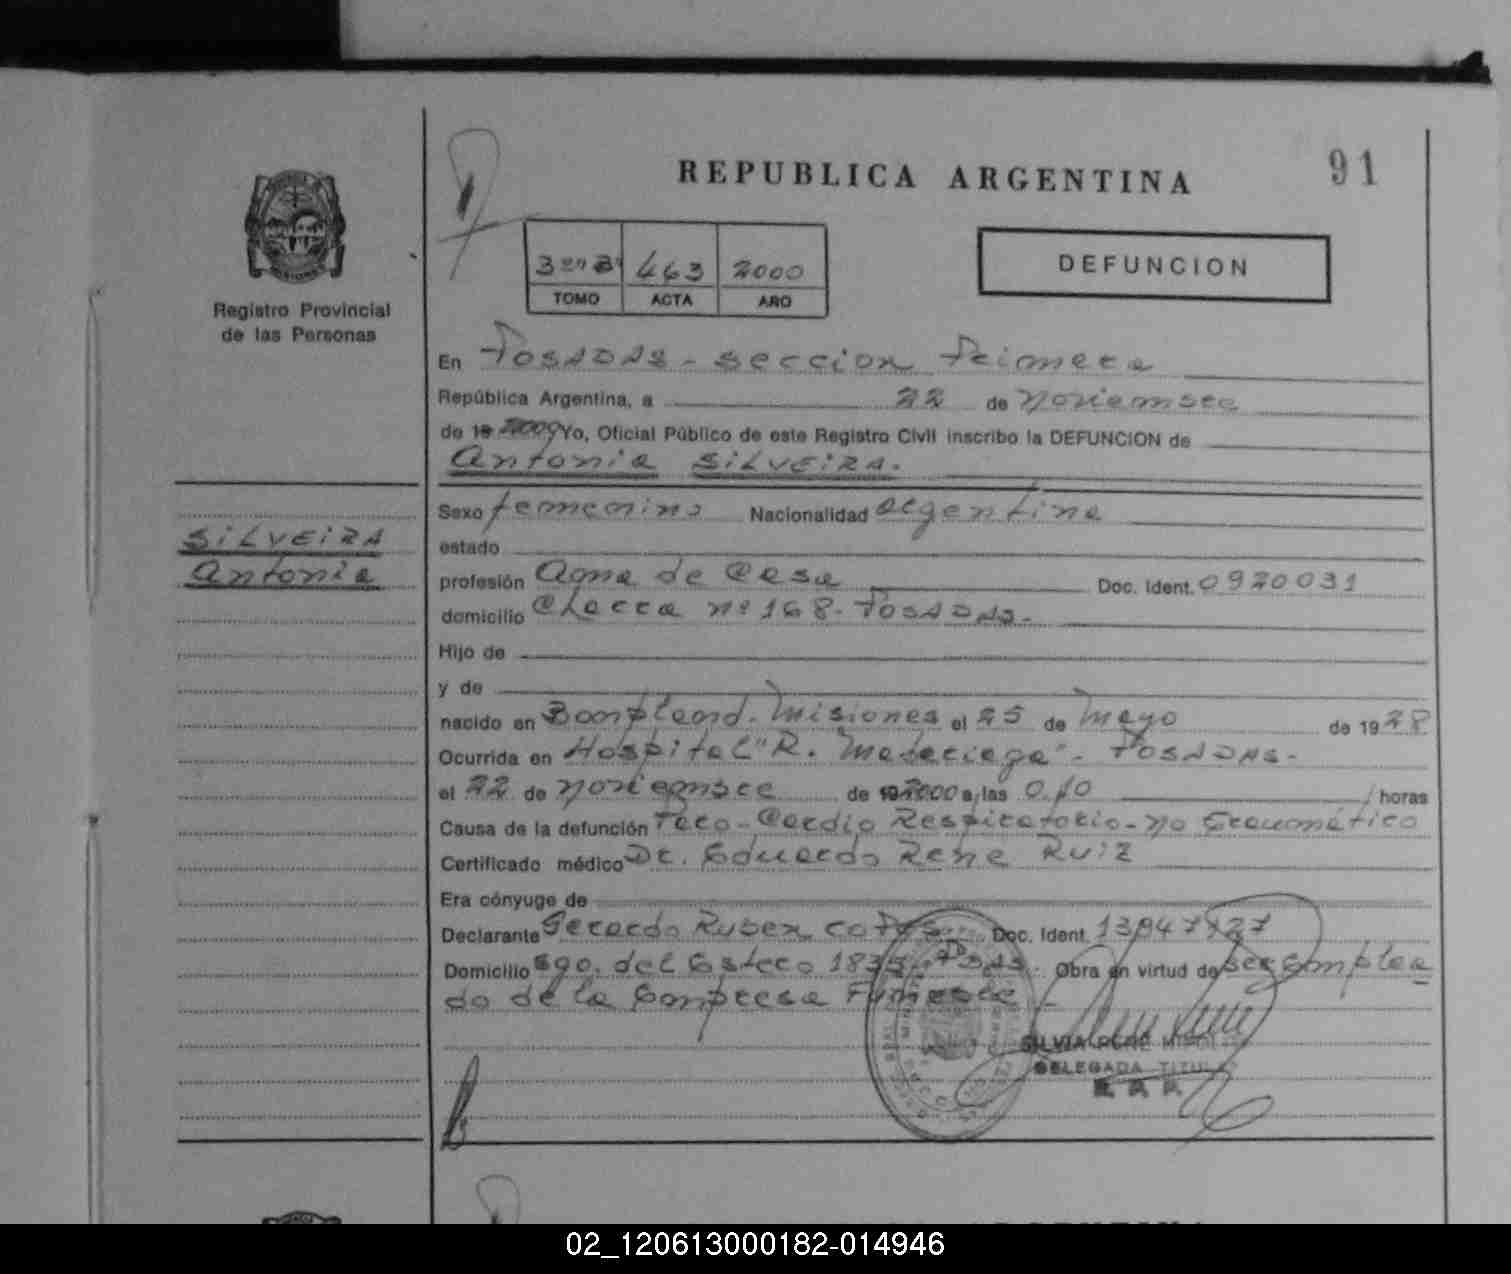 REPUBLICA ARGENTINA
91
463 2000
TOMO ACTA AÑO
DEFUNCION
Registro Provincial
de las Personas
En Posadas - seccion Primera
República Argentina, a 22 de Noviembre
de 19 2000 Yo, Oficial Público de este Registro Civil inscribo la DEFUNCION de
Antonia SILVEIRA.
SILVEIRA
Antonia
Sexo femenino Nacionalidad argentina
estado
profesión Ama de Casa Doc. Ident. 0920031
domicilio Chacra nº 168 - POSADAS.
Hijo de
y de
nacido en Bonpland. Misiones el 25 de Mayo de 1928
Ocurrida en Hospital "R. Madariaga" - POSADAS -
el 22 de Noviembre de 19 2000 a las 0.10 horas
Causa de la defunción Paro - Cardio Respiratorio - no traumático
Certificado médico Dr. Eduardo Rene Ruiz
Era cónyuge de
Declarante Gerardo Ruben Doc. Ident.
Domicilio Sgo. del Estero Obra en virtud de ser emplea
do de la Empresa Funebre
SILVIA RENE
DELEGADA TITULAR
02_120613000182-014946